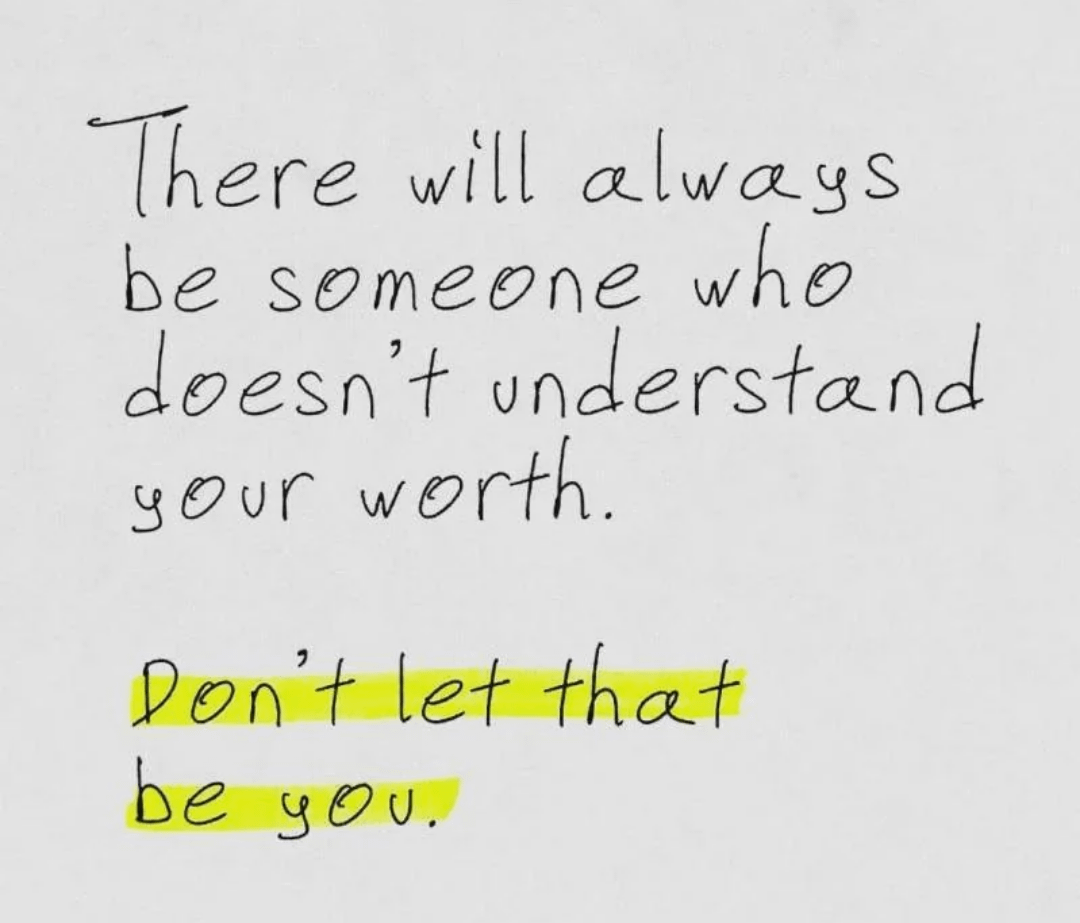 There will always
be someone who
doesn't understand
your worth.
Don't let that
be you.